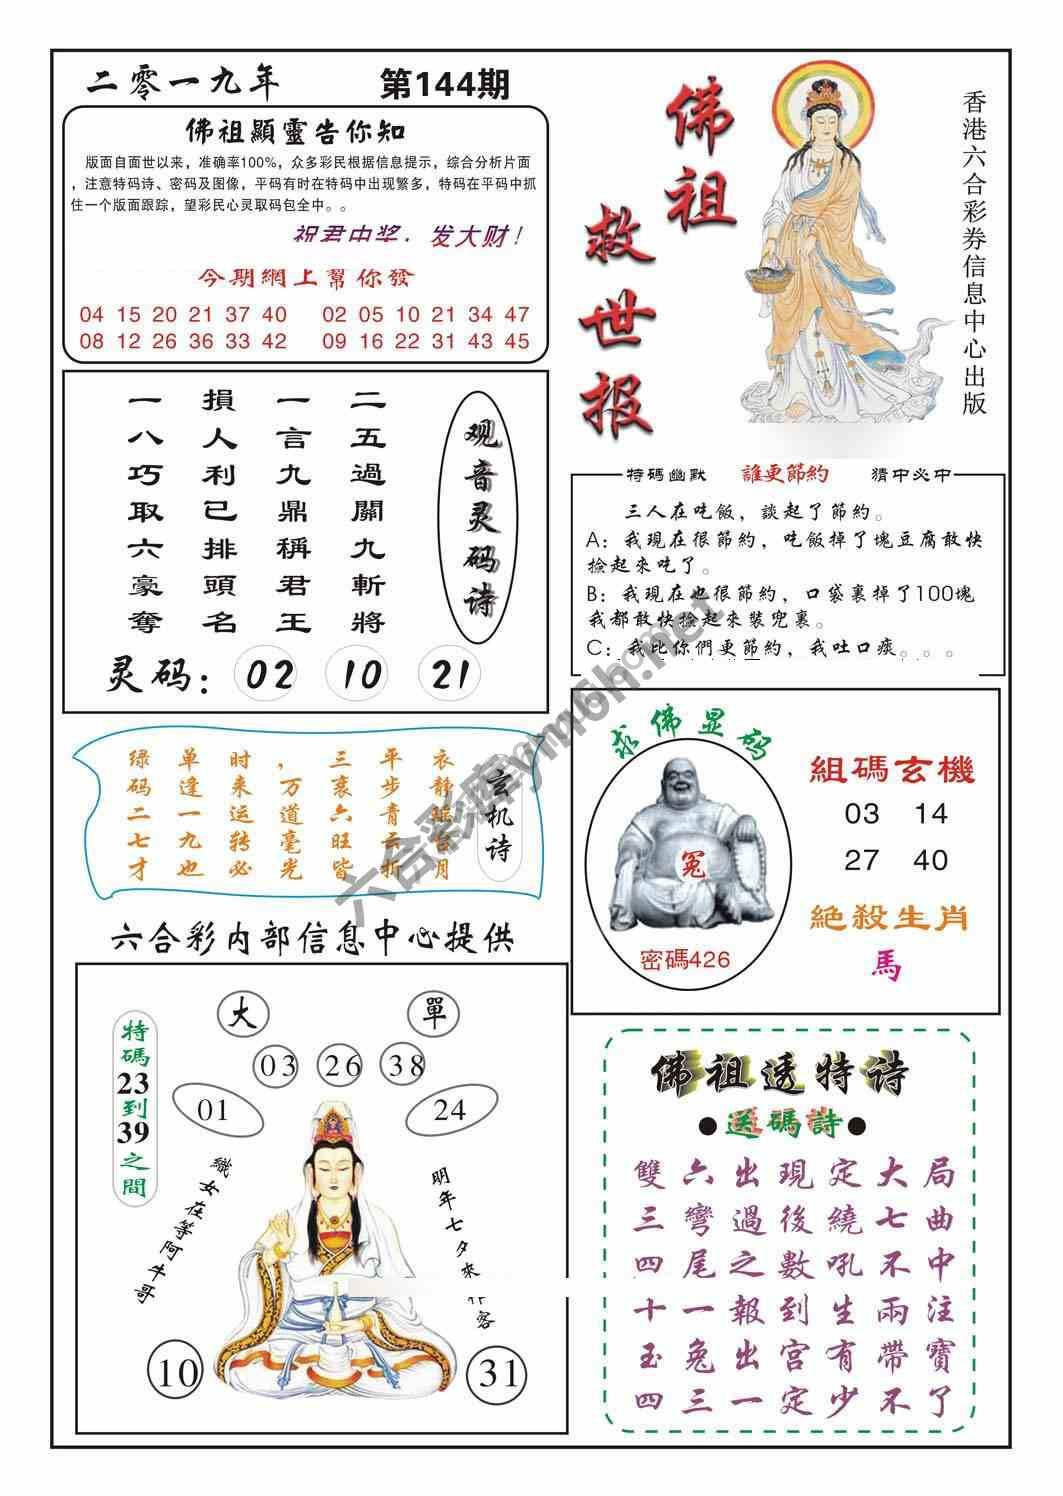 二零一九年
第144期
佛祖顯靈告你知
版面自面世以来，准确率100%，众多彩民根据信息提示，综合分析片面
，注意特码诗、密码及图像，平码有时在特码中出现繁多，特码在平码中抓
住一个版面跟踪，望彩民心灵取码包全中。。
祝君中奖，发大财！
今期網上幫你發
04 15 20 21 37 40 02 05 10 21 34 47
08 12 26 36 33 42 09 16 22 31 43 45
佛祖
救世报
香港六合彩券信息中心出版
观音灵码诗
二五過關九斬將
一言九鼎稱君王
損人利己排頭名
一八巧取六豪奪
灵码：02 10 21
特碼幽默 誰更節約 猜中必中
三人在吃飯，談起了節約。
A：我現在很節約，吃飯掉了塊豆腐敢快
撿起來吃了。
B：我現在也很節約，口袋裏掉了100塊
我都敢快撿起來裝兜裏。
C：我比你們更節約，我吐口痰。。。
玄机诗
衣静瑶台月
平步青云折
三衰六旺皆
，万道毫光
时来运转必
单逢一九也
绿码二七才
求佛显码
冤
密碼426
組碼玄機
03 14
27 40
絕殺生肖
馬
六合彩内部信息中心提供
大 單
03 26 38
01 24
特碼23到39之間
織女在等阿牛哥
明年七夕來作客
10 31
佛祖透特诗
●送碼詩●
雙六出現定大局
三彎過後繞七曲
四尾之數吼不中
十一報到生兩注
玉兔出宮有帶寶
四三一定少不了
六合彩库ymq6h.net